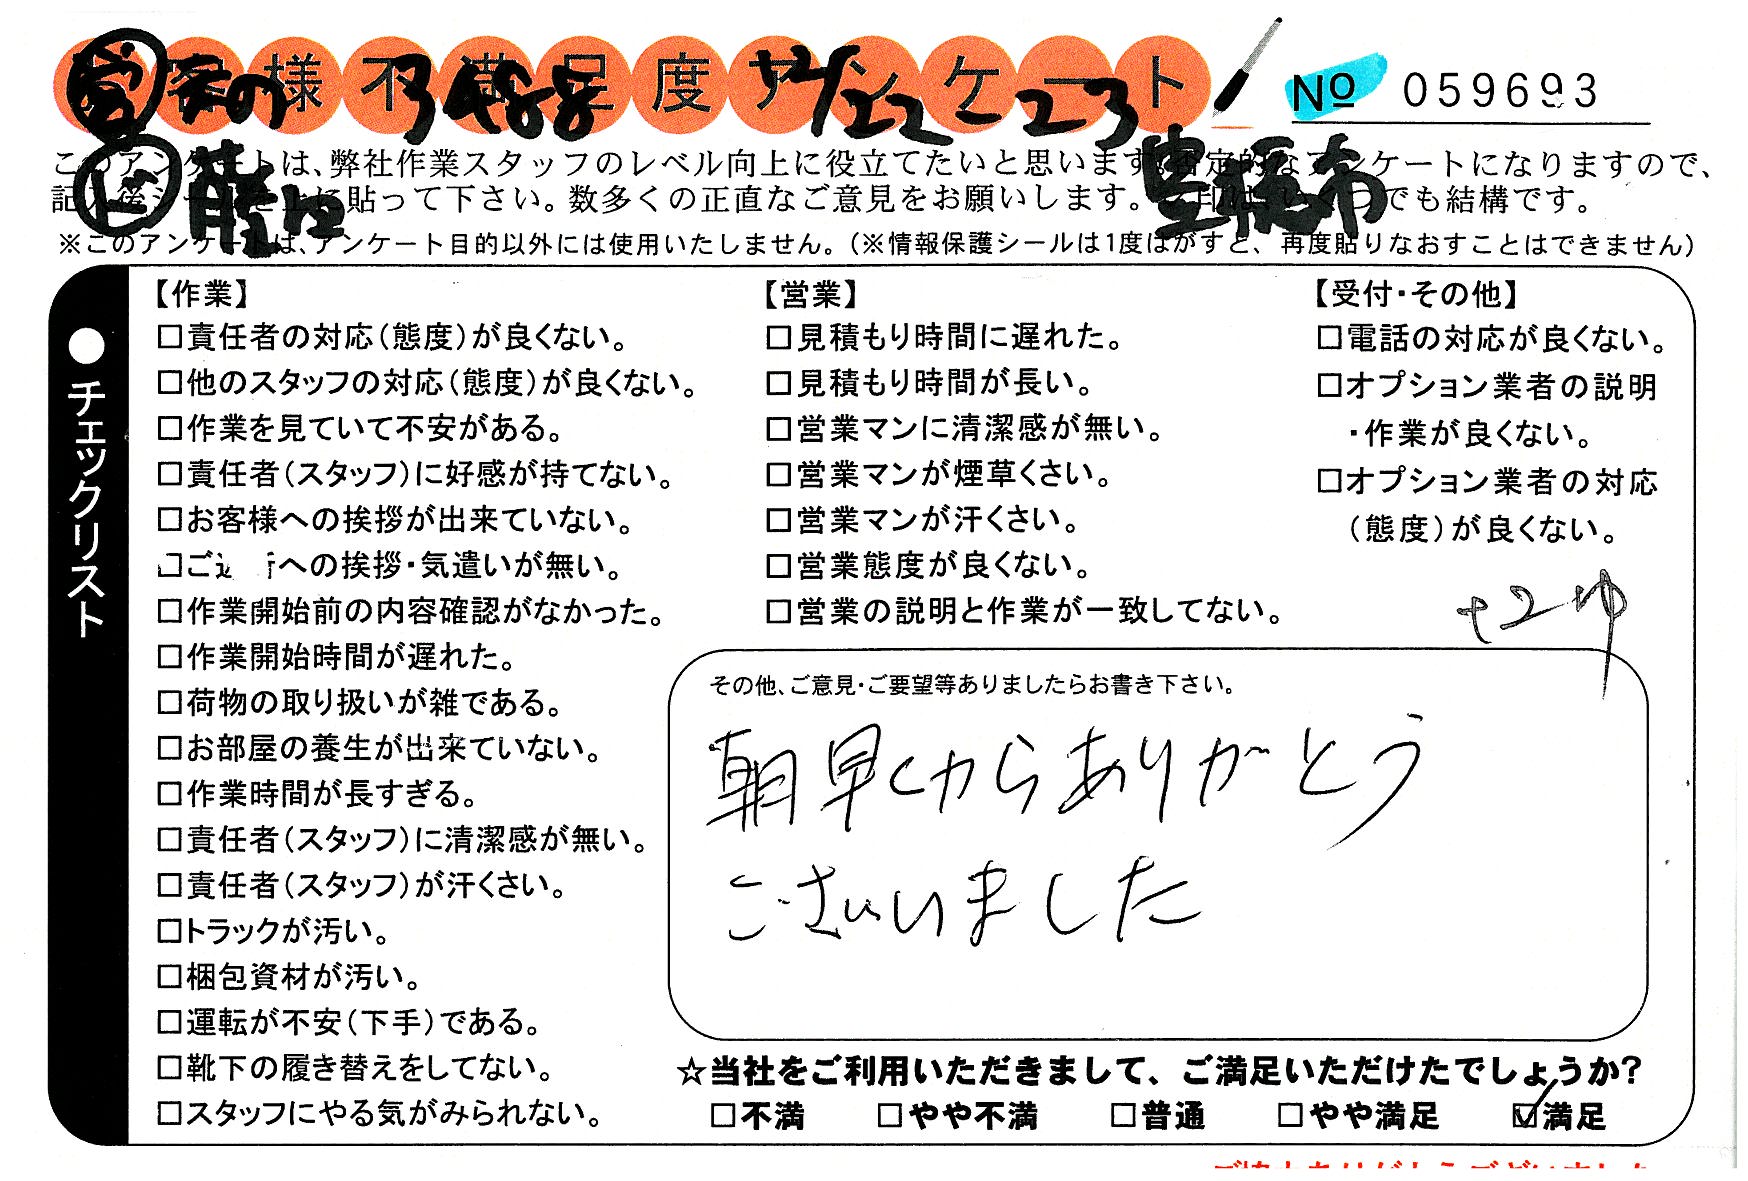 お客様不満足度アンケート
№ 059693
3488
22 23
このアンケートは、弊社作業スタッフのレベル向上に役立てたいと思います。否定的なアンケートになりますので、
記入後シールを上に貼って下さい。数多くの正直なご意見をお願いします。
でも結構です。
※このアンケートは、アンケート目的以外には使用いたしません。(※情報保護シールは1度はがすと、再度貼りなおすことはできません)
●チェックリスト
【作業】
□責任者の対応(態度)が良くない。
□他のスタッフの対応(態度)が良くない。
□作業を見ていて不安がある。
□責任者(スタッフ)に好感が持てない。
□お客様への挨拶が出来ていない。
□ご近所への挨拶・気遣いが無い。
□作業開始前の内容確認がなかった。
□作業開始時間が遅れた。
□荷物の取り扱いが雑である。
□お部屋の養生が出来ていない。
□作業時間が長すぎる。
□責任者(スタッフ)に清潔感が無い。
□責任者(スタッフ)が汗くさい。
□トラックが汚い。
□梱包資材が汚い。
□運転が不安(下手)である。
□靴下の履き替えをしてない。
□スタッフにやる気がみられない。
【営業】
□見積もり時間に遅れた。
□見積もり時間が長い。
□営業マンに清潔感が無い。
□営業マンが煙草くさい。
□営業マンが汗くさい。
□営業態度が良くない。
□営業の説明と作業が一致してない。
【受付・その他】
□電話の対応が良くない。
□オプション業者の説明
・作業が良くない。
□オプション業者の対応
(態度)が良くない。
その他、ご意見・ご要望等ありましたらお書き下さい。
朝早くからありがとう
ございました
☆当社をご利用いただきまして、ご満足いただけたでしょうか?
□不満 □やや不満 □普通 □やや満足 ☑満足